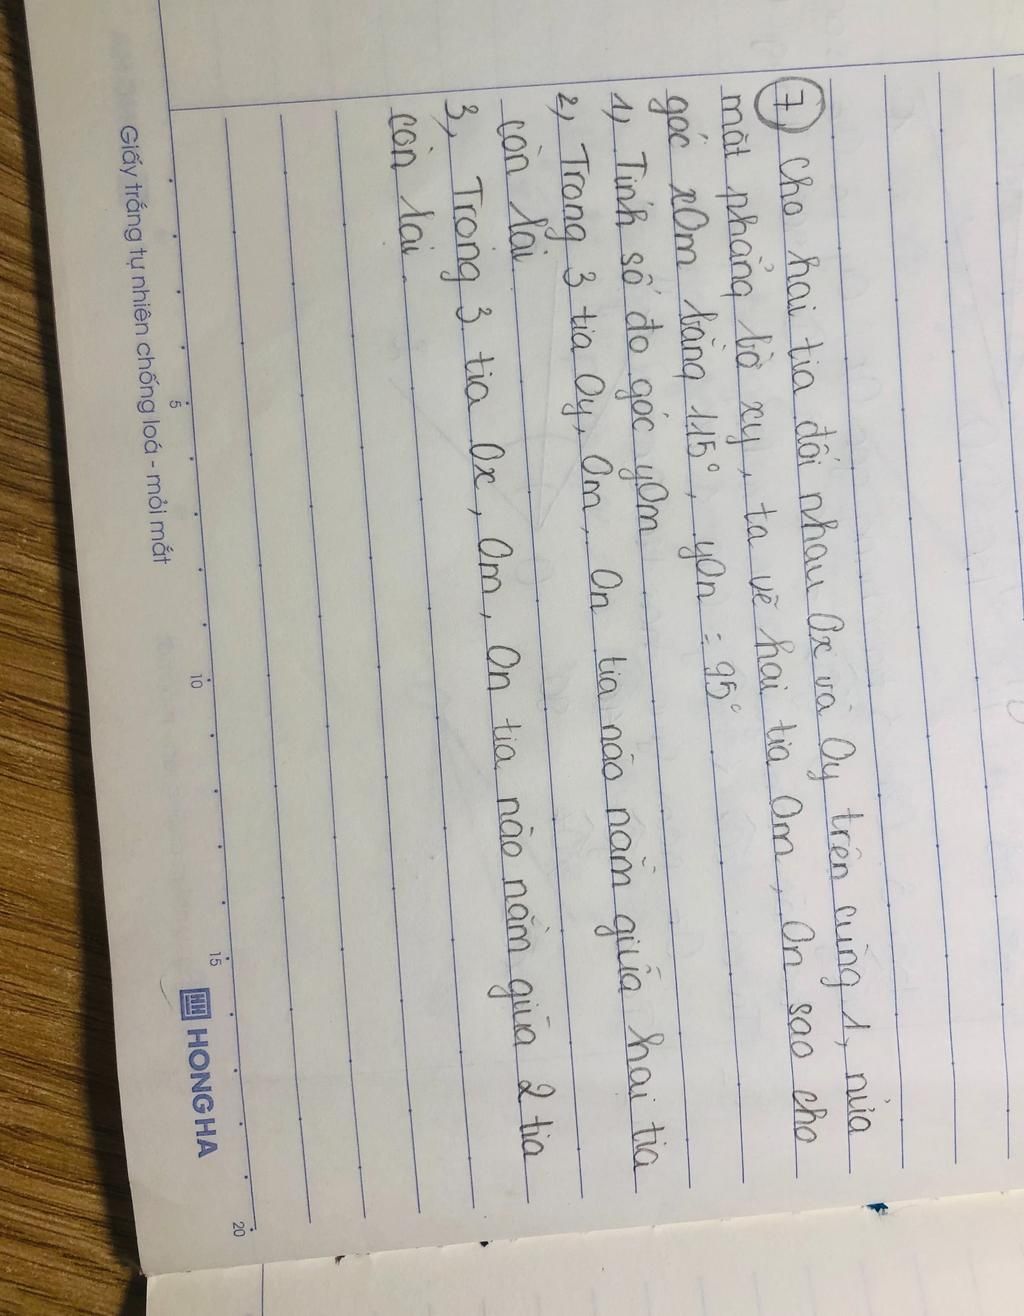 7 Cho hai tia đối nhau Ox và Oy trên cùng 1, nửa
mặt phẳng bờ xy, ta vẽ hai tia Om, On sao cho
góc xOm bằng 115°, yOn = 95°
1, Tính số đo góc yOm
2, Trong 3 tia Oy, Om, On tia nào nằm giữa hai tia
còn lại
3, Trong 3 tia Ox, Om, On tia nào nằm giữa 2 tia
còn lại.
5 10 15 20
Giấy trắng tự nhiên chống loá - mỏi mắt
HH HONG HA